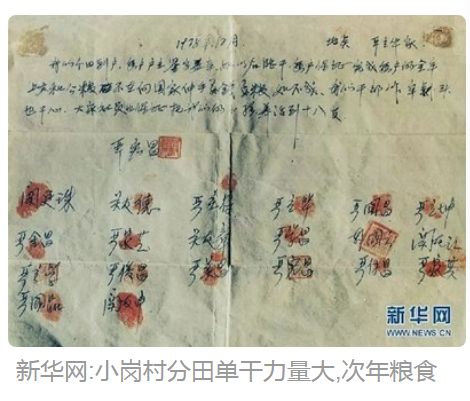 1978年12月 地点 严立华家
我们分田到户,每户户主签字盖章,如以后能干,每户保证完成每户的全年
上交和公粮,不在向国家伸手要钱要粮,如不成,我们干部作牢刹头
也干心,大家社员也保证把我们的小孩养活到十八岁。
严宏昌
关廷珠 关友德 严立符 严立华 严国昌 严立坤
严金昌 严家芝 关友章 严学昌 韩国云 关友江
严立学 严俊昌 严美昌 严宏昌 严付昌
严国品 关友申
新华网
WWW.NEWS.CN
新华网:小岗村分田单干力量大,次年粮食